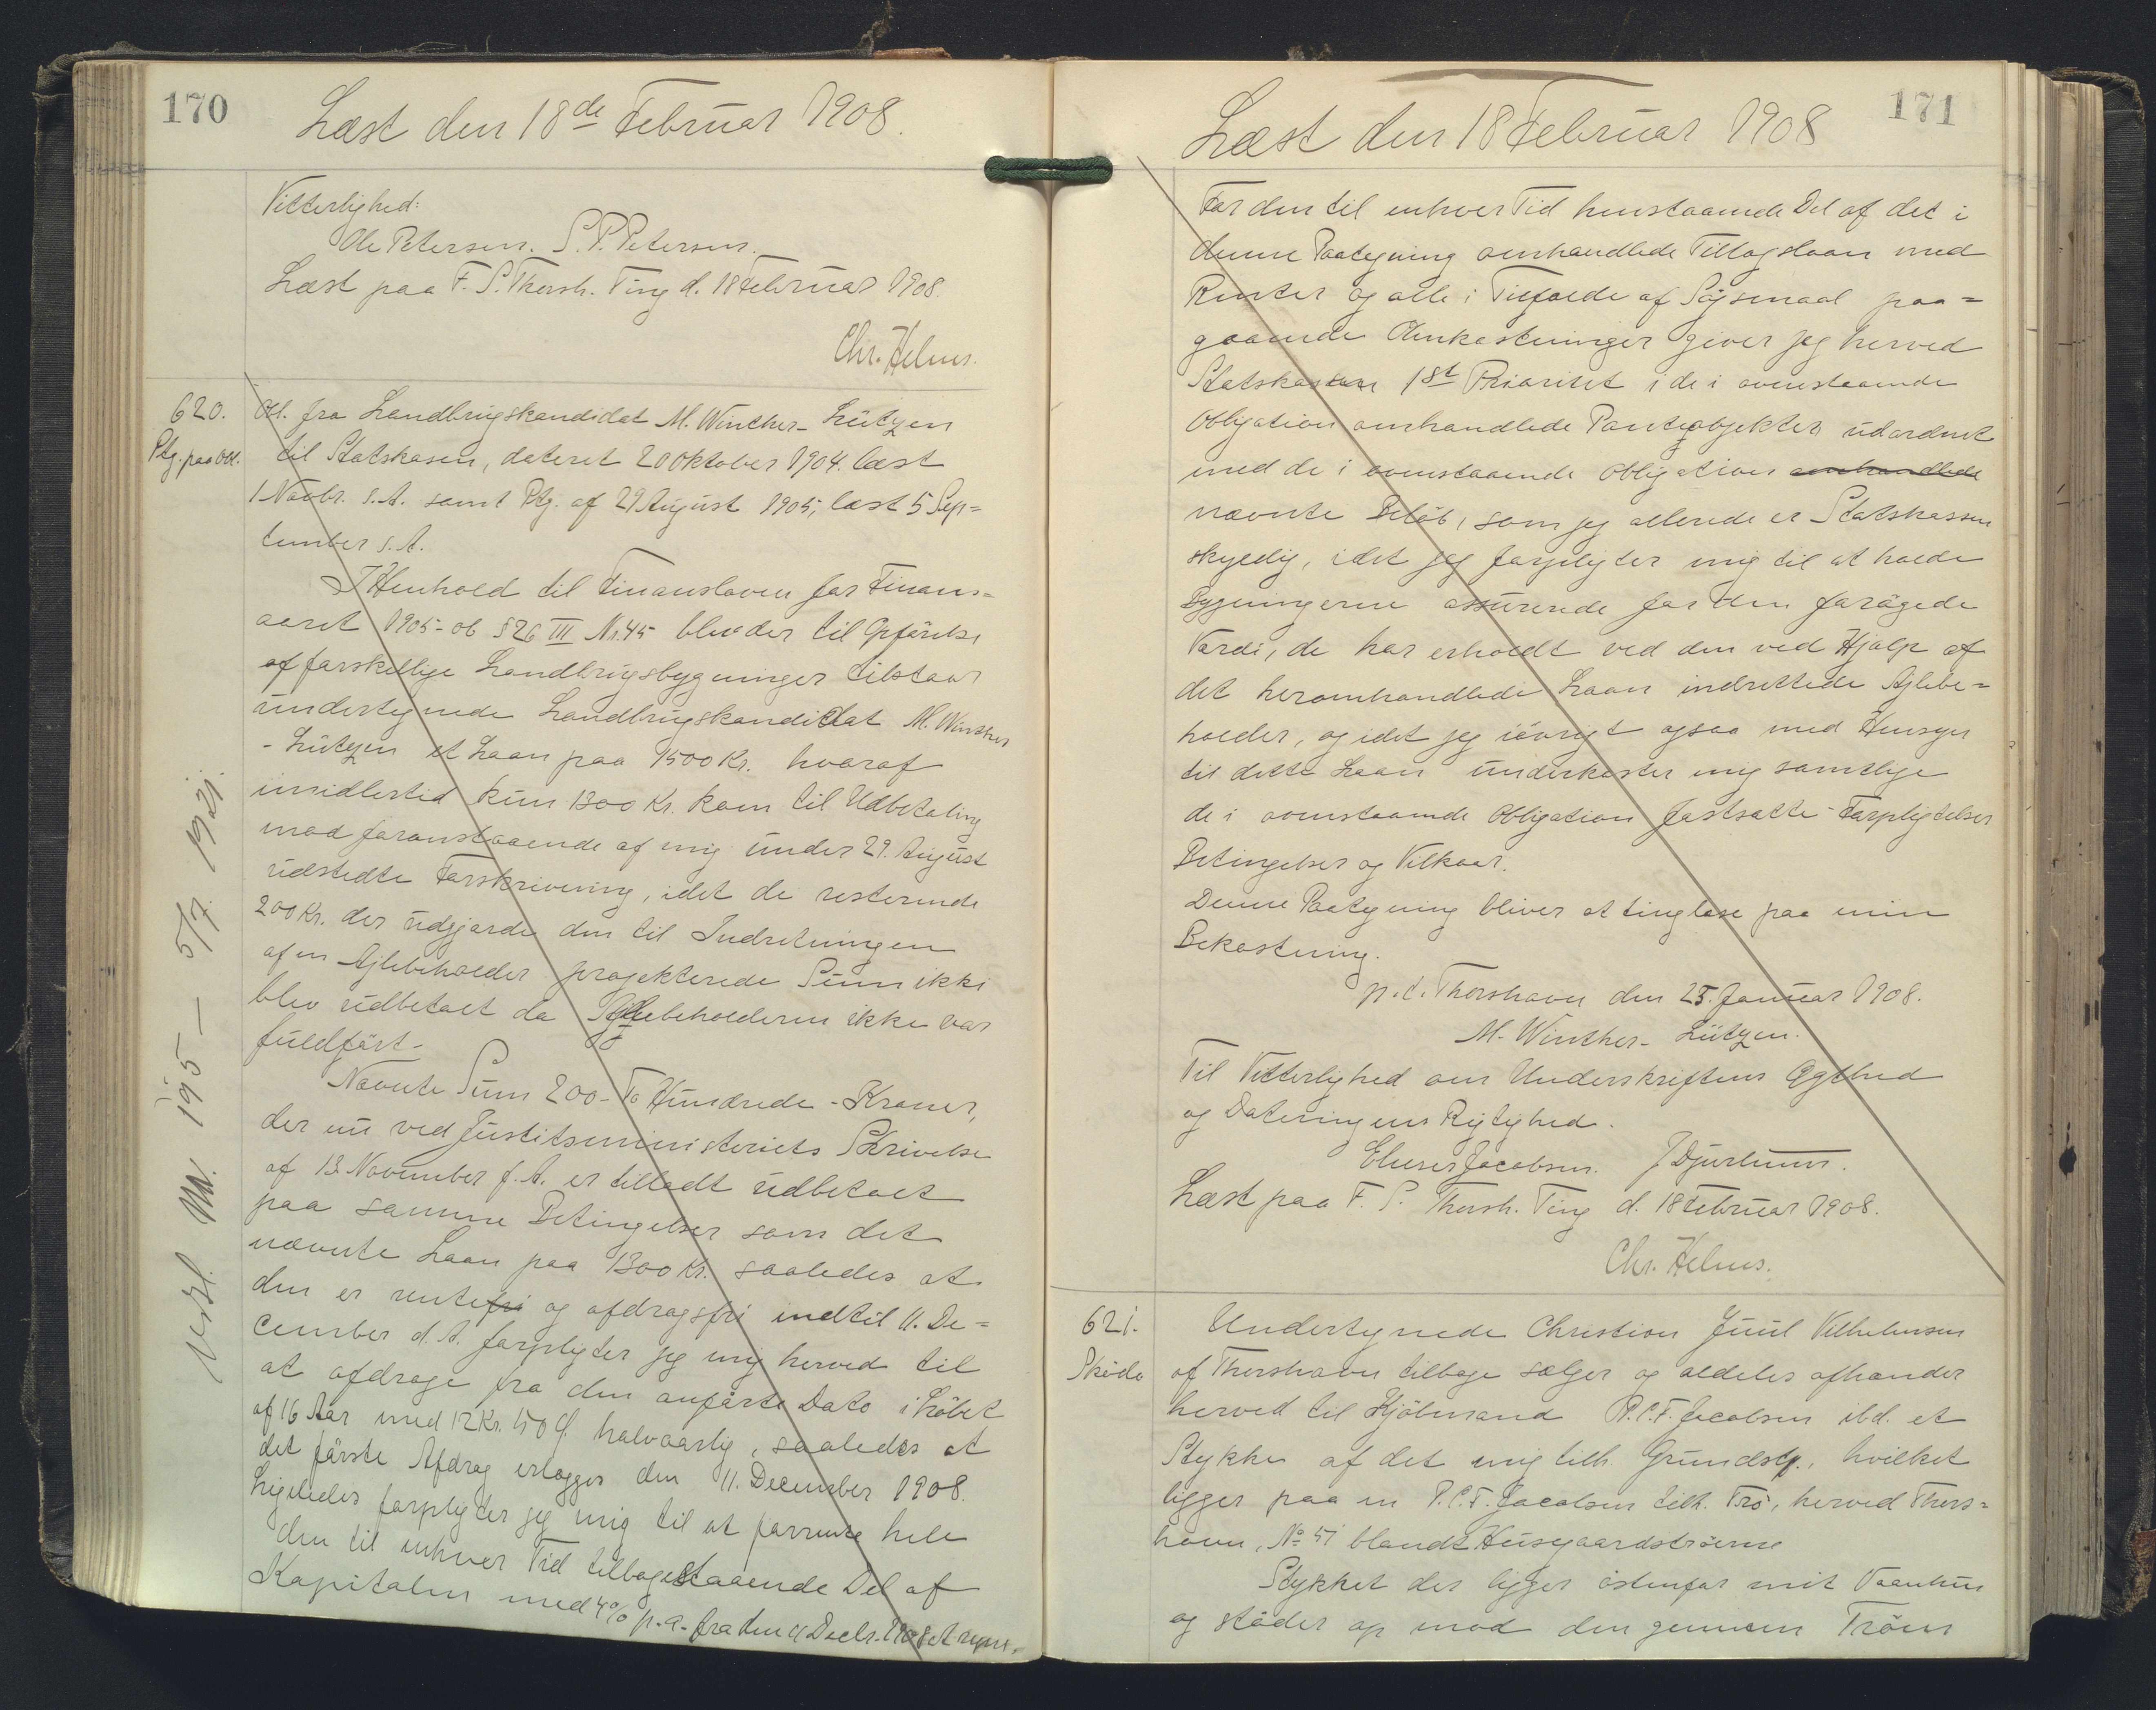 170
Læst den 18de Februar 1908.
Vitterlighed:
Ole Petersen. S. P. Petersen.
Læst paa F. S. Thorsh. Ting d. 18 Februar 1908.
Chr. Helms.
620.
Ptg. paa Obl.
Obl. fra Landbrugskandidat M. Winther-Lützen
til Statskasen, dateret 20 Oktober 1904. læst
1 Novbr. s.A. samt Ptg. af 29 August 1905, læst 5 Sep=
tember s.A.
I Henhold til Finansloven for Finans=
aaret 1905-06 § 26 III Nr. 45 blev der til Opførelse
af forskellige Landbrugsbygninger tilstaaet
undertegnede Landbrugskandidat M. Winther
-Lützen et Laan paa 1500 Kr. hvoraf
imidlertid kun 1300 Kr. kom til Udbetaling
mod foranstaaende af mig under 29. August
udstedte Forskrivning, idet de resterende
200 Kr. der udgjorde den til Indretningen
af en Ajlebeholder projekterede Sum ikke
blev udbetalt da Ajlebeholderen ikke var
fuldført.
Nævnte Sum 200 - To Hundrede - Kroner,
der nu ved Justitsministeriets Skrivelse
af 13 November f.A. er tilladt udbetalt
paa samme Betingelser som det
nævnte Laan paa 1300 Kr. saaledes at
den er rentefri og afdragsfri indtil 11. De=
cember d.A. forpligter jeg mig herved til
at afdrage fra den anførte Dato i Løbet
af 16 Aar med 12 Kr. 50 Ø. halvaarlig, saaledes at
det første Afdrag erlægges den 11. December 1908.
Ligeledes forpligter jeg mig til at forrente hele
den til enhver Tid tilbagestaaende Del af
Kapitalen med 4% p.a. fra den 11 Decbr. 1908 at regne.
Vertl. Nr. 195 – 5/7. 1921.
171
Læst den 18 Februar 1908
For den til enhver Tid henstaaende Del af det i
denne Paategning omhandlede Tillægslaan med
Renter og alle i Tilfælde af Søgsmaal paa=
gaaende Omkostninger giver jeg herved
Statskassen 1st Prioritet i de i ovenstaaende
Obligation omhandlede Panteobjekter sidordnet
med de i ovenstaaende Obligation omhandlede
nævnte Beløb, som jeg allerede er Statskassen
skyldig, idet jeg forpligter mig til at holde
Bygningerne assurerede for den forøgede
Værdi, de har erholdt ved den ved Hjælp af
det heromhandlede Laan indrettede Ajlebe=
holder, og idet jeg iøvrigt ogsaa med Hensyn
til dette Laan underkaster mig samtlige
de i ovenstaaende Obligation fastsatte Forpligtelser
Betingelser og Vilkaar.
Denne Paategning bliver at tinglæse paa min
Bekostning.
p.t. Thorshavn den 25. Januar 1908.
M. Winther-Lützen.
Til Vitterlighed om Underskriftens Ægthed
og Dateringens Rigtighed.
Elieser Jacobsen. J Djurhuus.
Læst paa F. S. Thorsh. Ting d. 18 Februar 1908.
Chr. Helms.
621.
Skøde
Undertegnede Christian Juul Vilhelmsen
af Thorshavn tilbage sælger og aldeles afhænder
herved til Kjøbmand P.C.F. Jacobsen ibd. et
Stykke af det mig tilh. Grundstk., hvilket
ligger paa en P.C.F. Jacobsen tilh. Trø, herved Thors=
havn, No 51 blandt Husgaardstrøerne
Stykket der ligger østenfor mit Vaanhus
og støder op mod den gennem Trøen